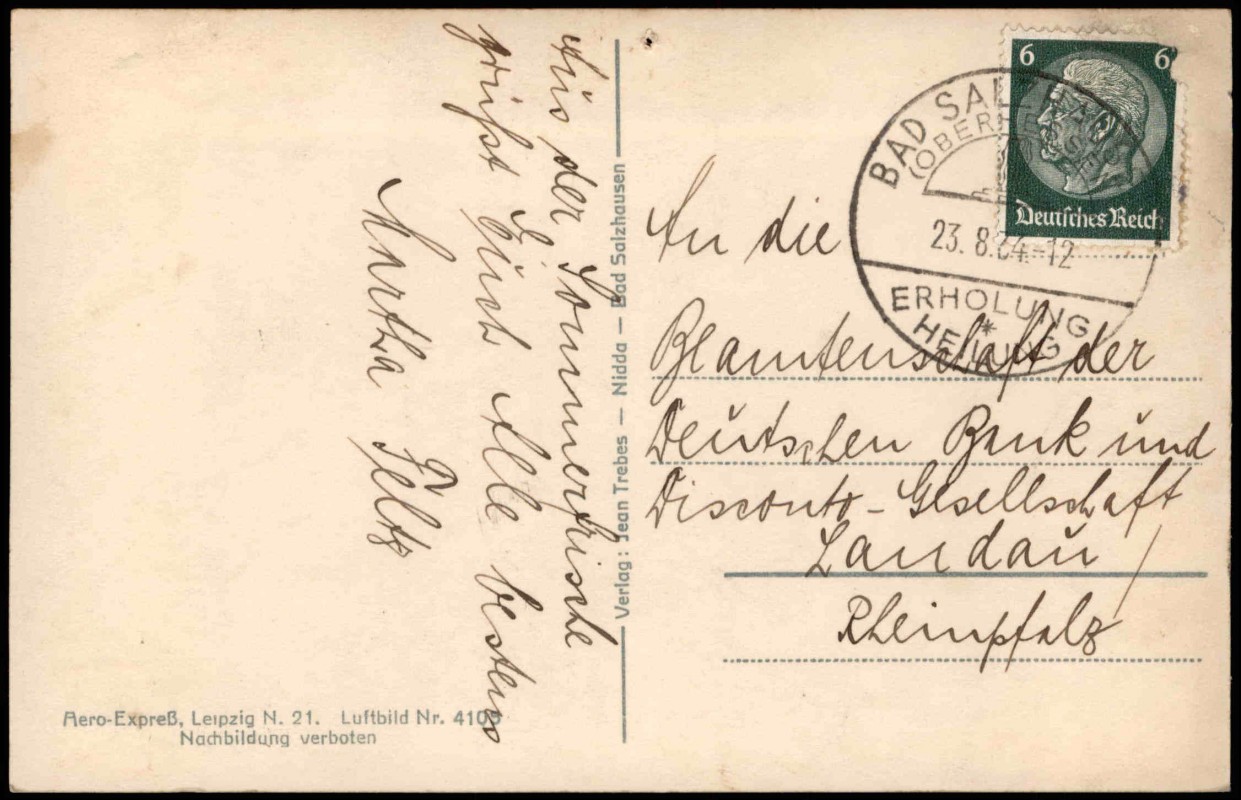 Aus der Sommerfrische
grüßt Euch Alle bestens
Martha Feltz
Verlag: Jean Trebes — Nidda — Bad Salzhausen
6 6
Deutsches Reich
BAD SALZHAUSEN
(OBERHESSEN)
23.8.34.-12
ERHOLUNG
*
HEILUNG
An die
Beamtenschaft der
Deutschen Bank und
Disconto-Gesellschaft
Landau /
Rheinpfalz
Aero-Expreß, Leipzig N. 21. Luftbild Nr. 4105
Nachbildung verboten